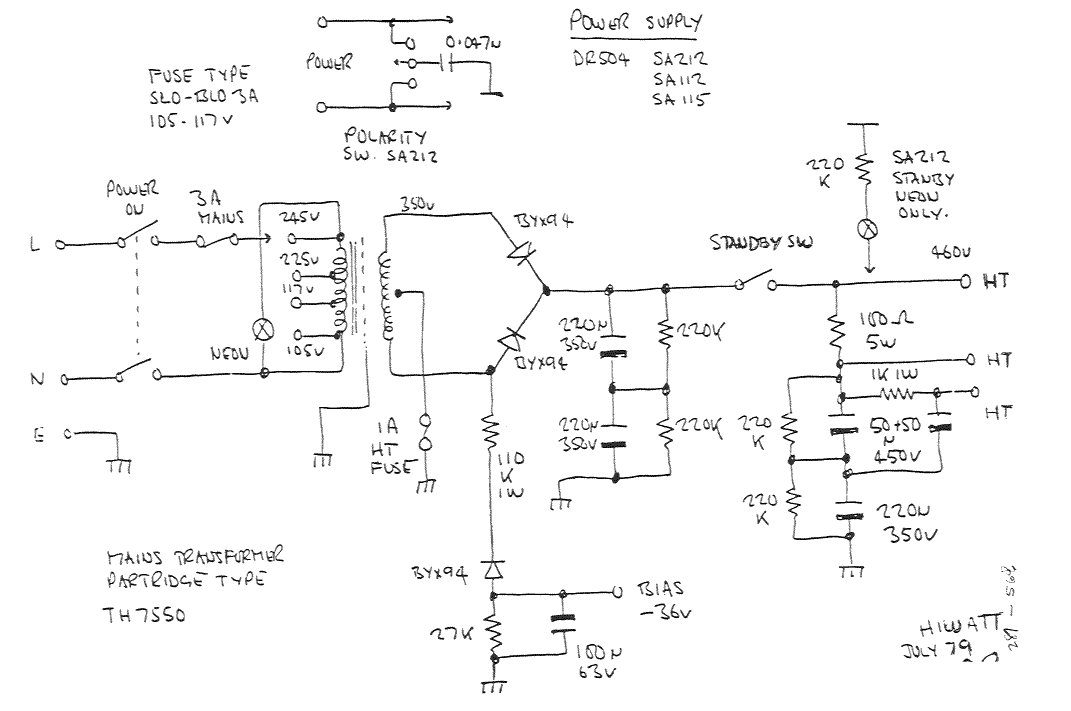 POWER SUPPLY
DR504 SA212
SA112
SA115
FUSE TYPE
SLO-BLO 3A
105-117V
POWER
0.047µ
POLARITY
SW. SA212
POWER
ON
3A
MAINS
L
N
E
245V
225V
117V
105V
NEON
350V
BYX94
BYX94
1A
HT
FUSE
110
K
1W
220µ
350V
220K
220µ
350V
220K
STANDBY SW
220
K
SA212
STANBY
NEON
ONLY.
460V
HT
100Ω
5W
HT
1K 1W
HT
220
K
50+50
µ
450V
220
K
220µ
350V
MAINS TRANSFORMER
PARTRIDGE TYPE
TH7550
BYX94
BIAS
-36V
27K
100µ
63V
HIWATT
JULY 79